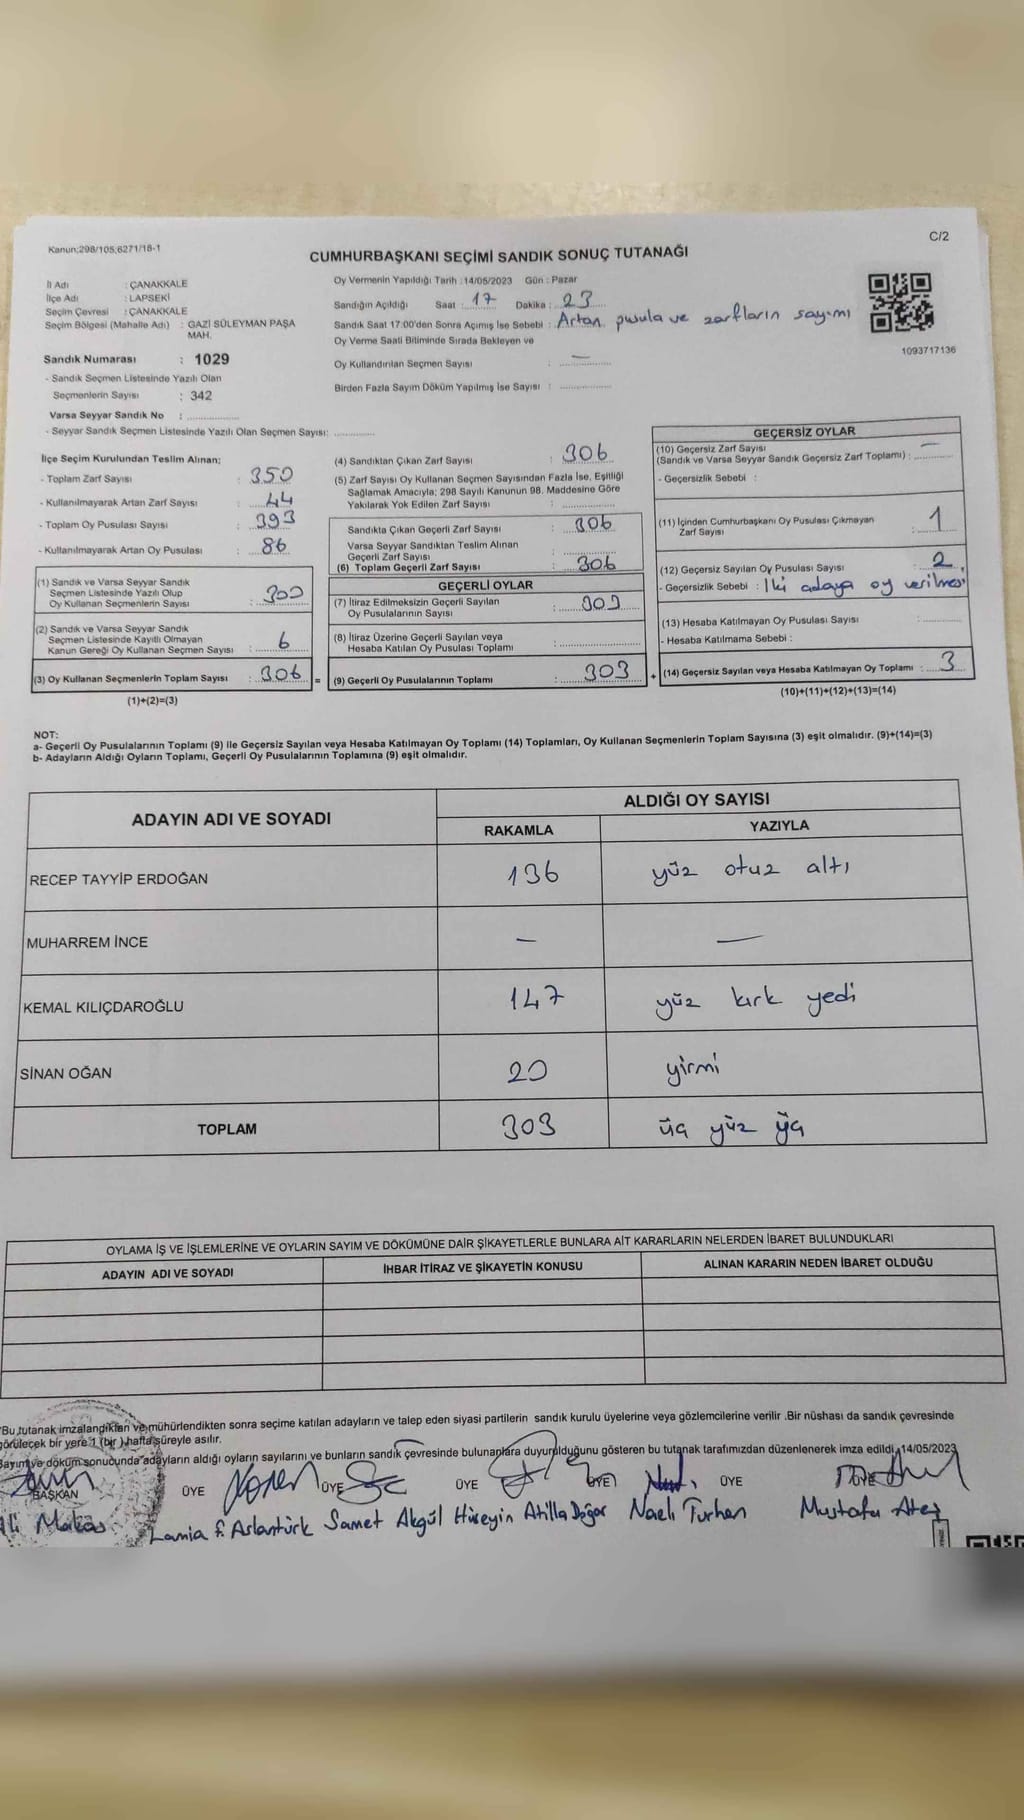 Kanun:298/105,6271/18-1
C/2
CUMHURBAŞKANI SEÇİMİ SANDIK SONUÇ TUTANAĞI
İl Adı : ÇANAKKALE
İlçe Adı : LAPSEKİ
Seçim Çevresi : ÇANAKKALE
Seçim Bölgesi (Mahalle Adı) : GAZİ SÜLEYMAN PAŞA
MAH.
Sandık Numarası : 1029
- Sandık Seçmen Listesinde Yazılı Olan
Seçmenlerin Sayısı : 342
Varsa Seyyar Sandık No : ..............
- Seyyar Sandık Seçmen Listesinde Yazılı Olan Seçmen Sayısı: ............
Oy Vermenin Yapıldığı Tarih : 14/05/2023 Gün : Pazar
Sandığın Açıldığı Saat : 17 Dakika : 23
Sandık Saat 17:00'den Sonra Açımış İse Sebebi : Artan pusula ve zarfların sayımı
Oy Verme Saati Bitiminde Sırada Bekleyen ve
Oy Kullandırılan Seçmen Sayısı : —
Birden Fazla Sayım Döküm Yapılmış İse Sayısı : ..............
1093717136
İlçe Seçim Kurulundan Teslim Alınan;
- Toplam Zarf Sayısı : 350
- Kullanılmayarak Artan Zarf Sayısı : 44
- Toplam Oy Pusulası Sayısı : 393
- Kullanılmayarak Artan Oy Pusulası : 86
(1) Sandık ve Varsa Seyyar Sandık
Seçmen Listesinde Yazılı Olup
Oy Kullanan Seçmenlerin Sayısı : 300
(2) Sandık ve Varsa Seyyar Sandık
Seçmen Listesinde Kayıtlı Olmayan
Kanun Gereği Oy Kullanan Seçmen Sayısı : 6
(3) Oy Kullanan Seçmenlerin Toplam Sayısı : 306 =
(1)+(2)=(3)
(4) Sandıktan Çıkan Zarf Sayısı : 306
(5) Zarf Sayısı Oy Kullanan Seçmen Sayısından Fazla İse, Eşitliği
Sağlamak Amacıyla; 298 Sayılı Kanunun 98. Maddesine Göre
Yakılarak Yok Edilen Zarf Sayısı : ..............
Sandıkta Çıkan Geçerli Zarf Sayısı : 306
Varsa Seyyar Sandıktan Teslim Alınan
Geçerli Zarf Sayısı : ..............
(6) Toplam Geçerli Zarf Sayısı : 306
GEÇERLİ OYLAR
(7) İtiraz Edilmeksizin Geçerli Sayılan
Oy Pusulalarının Sayısı : 303
(8) İtiraz Üzerine Geçerli Sayılan veya
Hesaba Katılan Oy Pusulası Toplamı : ..............
(9) Geçerli Oy Pusulalarının Toplamı : 303 +
GEÇERSİZ OYLAR
(10) Geçersiz Zarf Sayısı
(Sandık ve Varsa Seyyar Sandık Geçersiz Zarf Toplamı) : —
- Geçersizlik Sebebi :
(11) İçinden Cumhurbaşkanı Oy Pusulası Çıkmayan
Zarf Sayısı : 1
(12) Geçersiz Sayılan Oy Pusulası Sayısı : 2
- Geçersizlik Sebebi : İki adaya oy verilmesi
(13) Hesaba Katılmayan Oy Pusulası Sayısı : ............
- Hesaba Katılmama Sebebi :
(14) Geçersiz Sayılan veya Hesaba Katılmayan Oy Toplamı : 3
(10)+(11)+(12)+(13)=(14)
NOT:
a- Geçerli Oy Pusulalarının Toplamı (9) ile Geçersiz Sayılan veya Hesaba Katılmayan Oy Toplamı (14) Toplamları, Oy Kullanan Seçmenlerin Toplam Sayısına (3) eşit olmalıdır. (9)+(14)=(3)
b- Adayların Aldığı Oyların Toplamı, Geçerli Oy Pusulalarının Toplamına (9) eşit olmalıdır.
ADAYIN ADI VE SOYADI
ALDIĞI OY SAYISI
RAKAMLA YAZIYLA
RECEP TAYYİP ERDOĞAN 136 yüz otuz altı
MUHARREM İNCE — —
KEMAL KILIÇDAROĞLU 147 yüz kırk yedi
SİNAN OĞAN 20 yirmi
TOPLAM 303 üç yüz üç
OYLAMA İŞ VE İŞLEMLERİNE VE OYLARIN SAYIM VE DÖKÜMÜNE DAİR ŞİKAYETLERLE BUNLARA AİT KARARLARIN NELERDEN İBARET BULUNDUKLARI
ADAYIN ADI VE SOYADI İHBAR İTİRAZ VE ŞİKAYETİN KONUSU ALINAN KARARIN NEDEN İBARET OLDUĞU
*Bu tutanak imzalandıktan ve mühürlendikten sonra seçime katılan adayların ve talep eden siyasi partilerin sandık kurulu üyelerine veya gözlemcilerine verilir .Bir nüshası da sandık çevresinde
görülecek bir yere 1 (bir ) hafta süreyle asılır.
Sayım ve döküm sonucunda adayların aldığı oyların sayılarını ve bunların sandık çevresinde bulunanlara duyurulduğunu gösteren bu tutanak tarafımızdan düzenlenerek imza edildi. 14/05/2023
BAŞKAN ÜYE ÜYE ÜYE ÜYE ÜYE ÜYE
Lamia F. Aslantürk Samet Akgül Hüseyin Atilla Doğar Naeli Turhan Mustafa Ateş